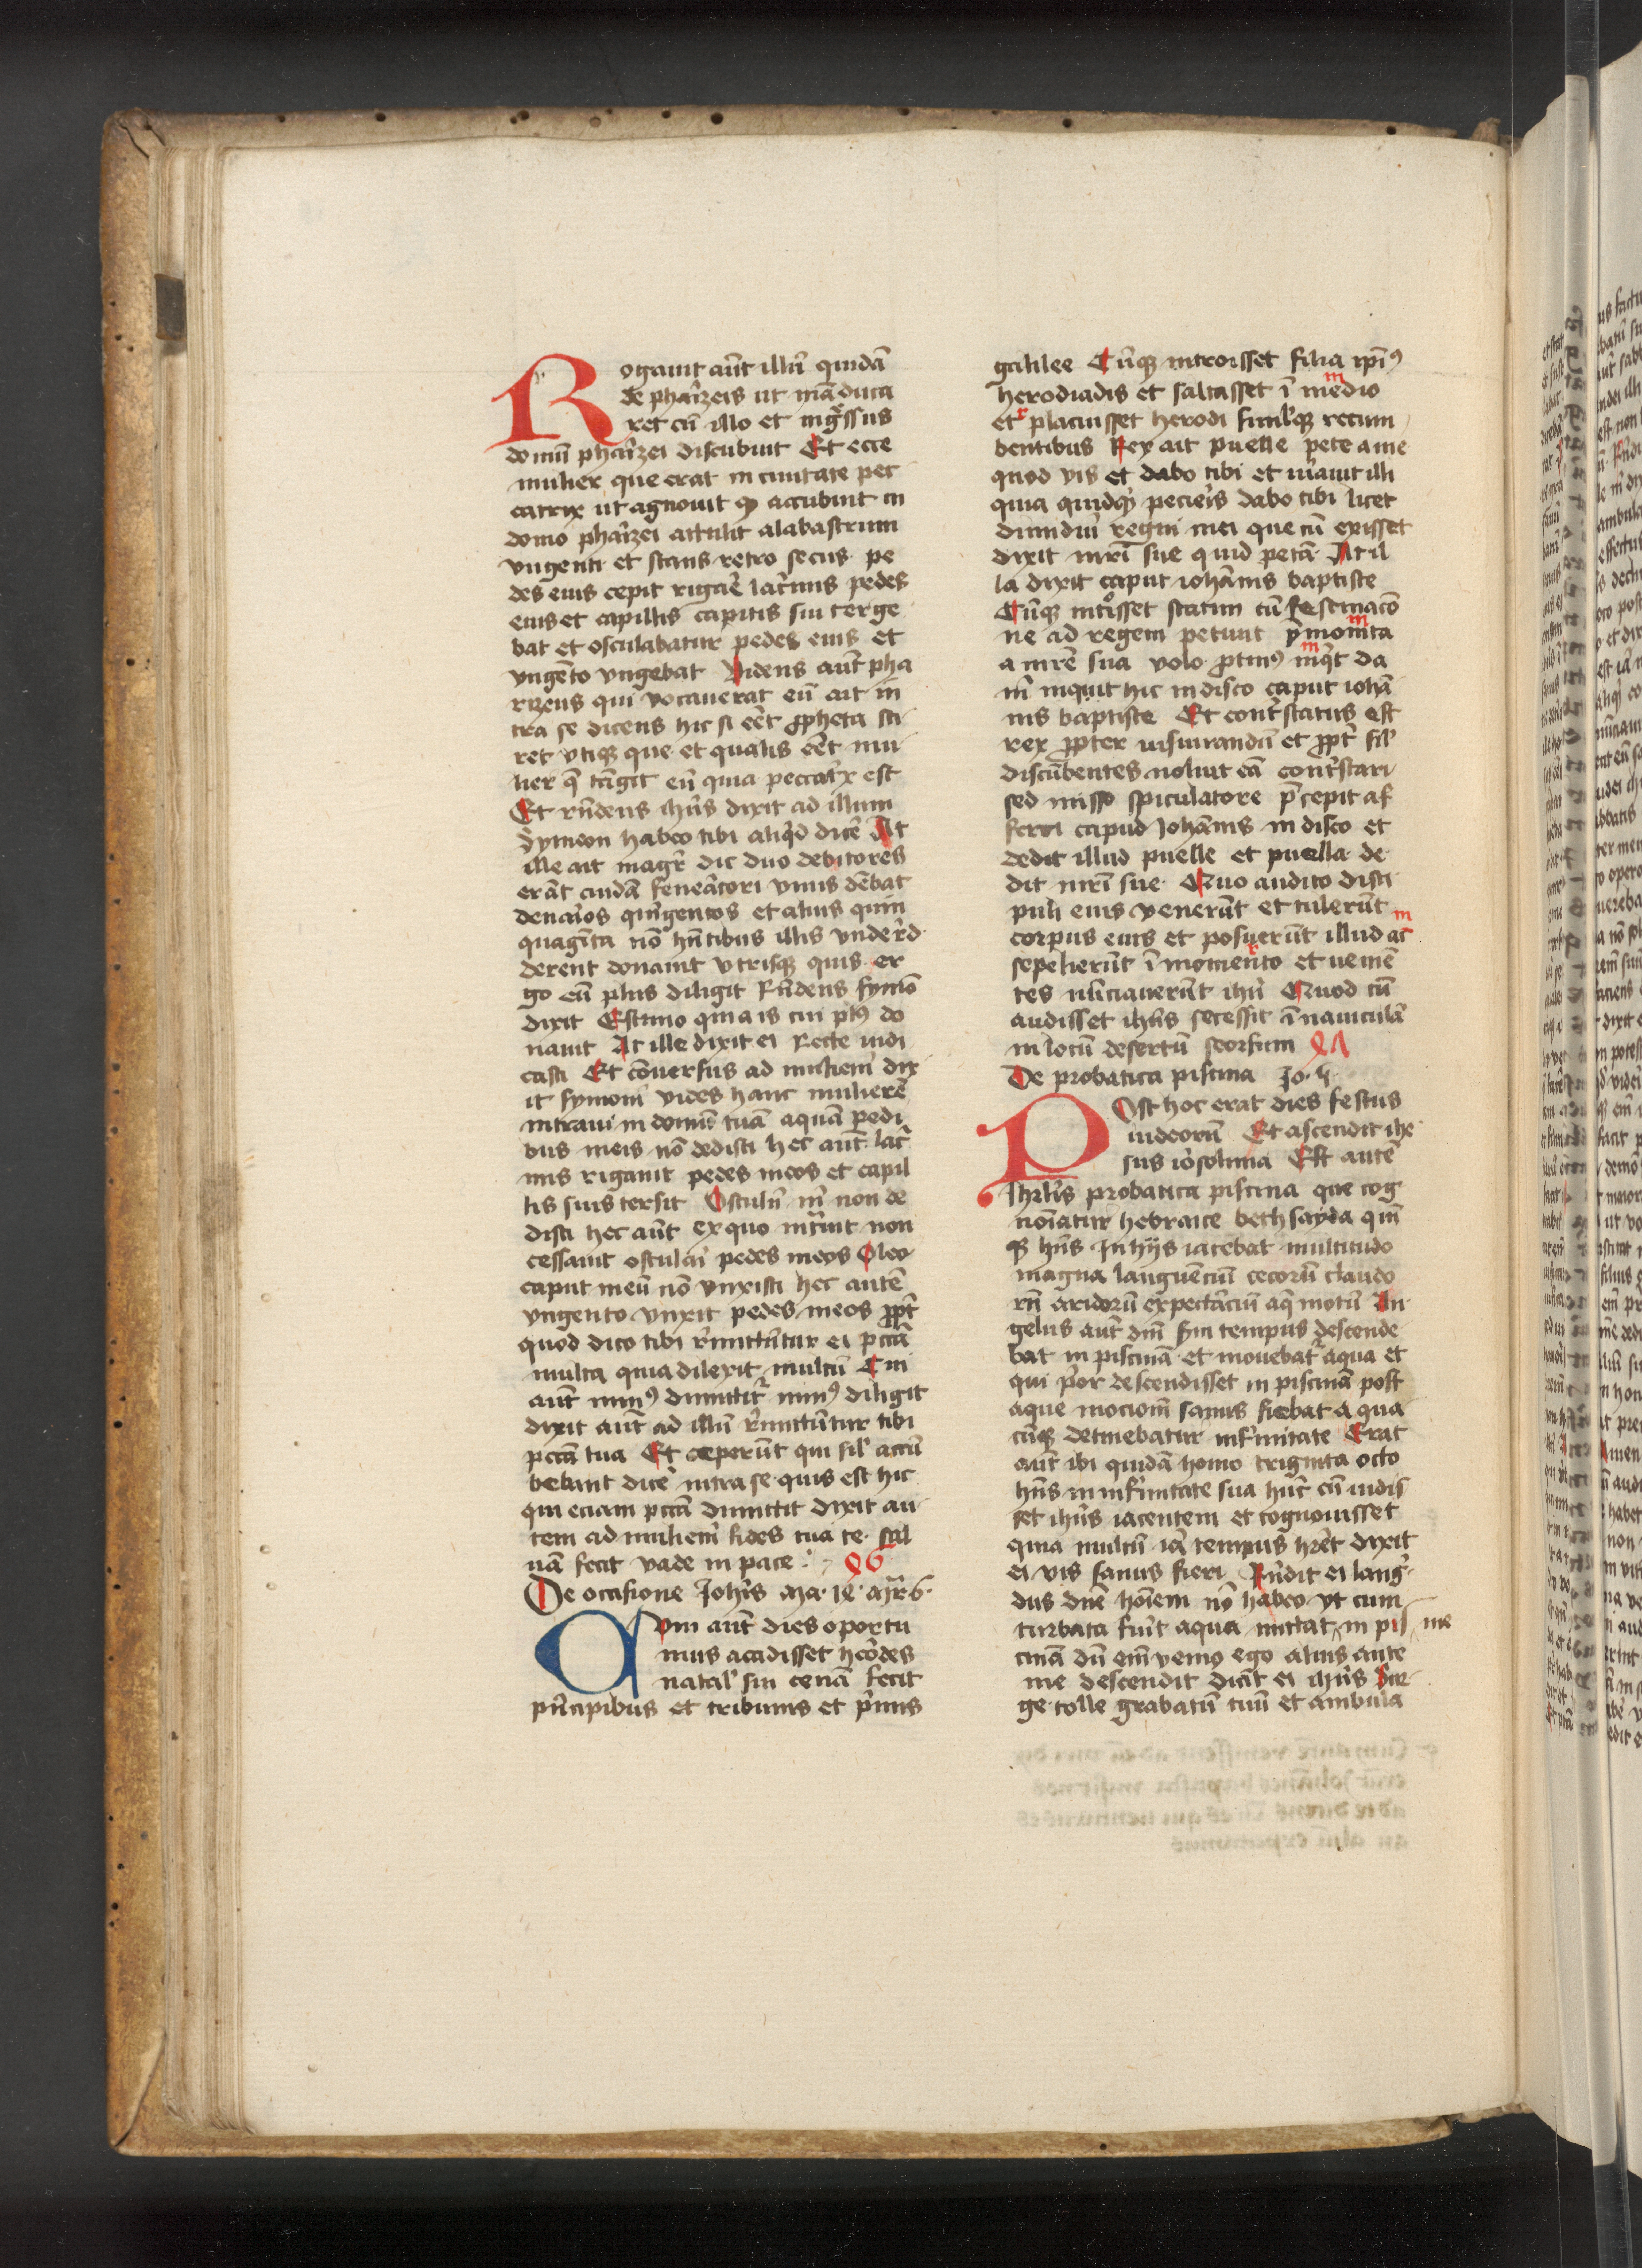 Rogauit aūt illū quidā
de phaꝛizeis ut māduca
ret cū illo et ingꝛssus
domū phaꝛizei discubuit Et ecce
mulier que erat in ciuitate pec
catrix ut agnouit ꝙ accubuit in
domo phaꝛizei attulit alabastrum
vngenti et stans retro secus pe
des eius cepit rigaꝛe lacꝛimis pedes
eius et capillis capitis sui terge
bat et osculabatur pedes eius et
vngēto vngebat Videns aūt pha
rizeus qui vocauerat eū ait in
tra se dicens hic si eēt ꝓpheta sci
ret vtiqꝫ que et qualis eēt mu
lier q̄ tāgit eū quia peccatꝛx est
Et rn̄dens ihūs dixit ad illum
Symeon habeo tibi aliqͥd diceꝛ At
ille ait magꝛ dic duo debitores
erāt cuidā feneꝛatori vnus dēbat
denaꝛios quīgentos et alius quin
quagīta nō hn̄tibus illis vnde rͥd
derent donauit vtrisqꝫ quis er
go eū plus diligit Rn̄dens symō
dixit Estimo quia is cui plꝰ do
nauit At ille dixit ei Recte iudi
casti Et cōuersus ad mulieꝛm dix
it symoni vides hanc mulierē
intraui in domū tuā aquā pedi
bus meis nō dedisti hec aūt lacꝛi
mis rigauit pedes meos et capil
lis suis tersit Osculū m̄ non de
disti hec aūt ex quo intꝛuit non
cessauit osculaꝛi pedes meos Oleo
caput meū nō vnxisti hec autē
vngento vnxit pedes meos ꝓpt̄
quod dico tibi rͥmittūtur ei pctā
multa quia dilexit multū Cui
aūt minꝰ dimittitꝛ minꝰ diligit
dixit aūt ad illū rͥmittūtur tibi
pctā tua Et ceperūt qui sil̓ accū
bebant diceꝛ intra se quis est hic
qui eciam pctā dimittit dixit au
tem ad mulieꝛm fides tua te sal
uā fecit vade in pace
De occasione Joh̄is Ma 14 Mr̄ 6
Cum aūt dies oportu
nus accidisset heꝛodes
natal̓ sui cenā fecit
pꝛncipibus et tribunis et pꝛimis
galilee Cūqꝫ introisset filia ip̄iꝰ
herodiadis et saltasset ī medio
et placuisset herodi simulqꝫ recum
bentibus Rex ait puelle pete a me
quod vis et dabo tibi et iuꝛauit illi
quia quidqͥd pecieꝛis dabo tibi licet
dimidiū regni mei que cū exisset
dixit mr̄i sue quid petā At il
la dixit caput iohānis baptiste
Cūqꝫ intꝛoisset statim cū festinacō
ne ad regem petiuit
a mr̄e sua volo ꝓtinꝰ da
m̄ inquit hic in disco caput iohā
nis baptiste Et contꝛstatus est
rex ꝓpter iusiurandū et ꝓpt̄ sil̓
discūbentes noluit eā contꝛstari
sed misso spiculatore p̄cepit af
ferri capud Johānis in disco et
dedit illud puelle et puella de
dit mr̄i sue Quo audito disci
puli eius venerūt et tulerūt
corpus eius et posuerūt illud ac
sepelierūt ī momento et venīē
tes nūciauerūt ihū Quod cū
audisset ihūs secessit ī nauiculā
in locū desertū seorsum
De probatica piscina Jo 5
Post hoc erat dies festus
iudeorū Et ascendit ihe
sus ieꝛosolima Est autē
Ihrl̄is probatica piscina que cog
noīatur hebraice bethsayda quīn
qꝫ hn̄s In hijs iacebat multitudo
magna languēcium cecorū claudo
rū aridorū expectāciū aq̄ motū An
gelus aūt dn̄i sm̄ tempus descende
bat in piscinā et mouebatꝛ aqua et
qui pꝛior descendisset in piscinā post
aque mocionē sanus fiebat a qua
cūqꝫ detinebatur infirmitate Erat
aūt ibi quidā homo triginta octo
hn̄s in infirmitate sua hūc cū uidis
set ihūs iacentem et cognouisset
quia multū iā tempus hr̄et dixit
ei vis sanus fieri Rn̄dit ei lang
dus dn̄e hoīem nō habeo vt cum
turbata fuīt aqua mittat in pis me
cinā dū em̄ venio ego alius ante
me descendit dicit ei ihūs Sur
ge tolle grabatū tuū et ambula